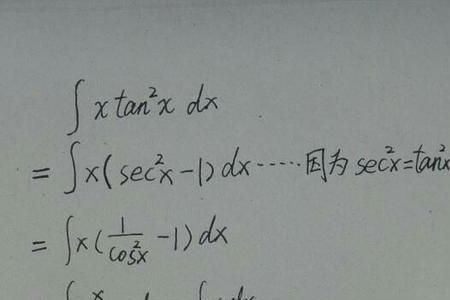 ∫ x tan²x dx
= ∫ x(sec²x - 1) dx ····· 因为 sec²x = tan²x
= ∫ x(1/cos²x - 1) dx